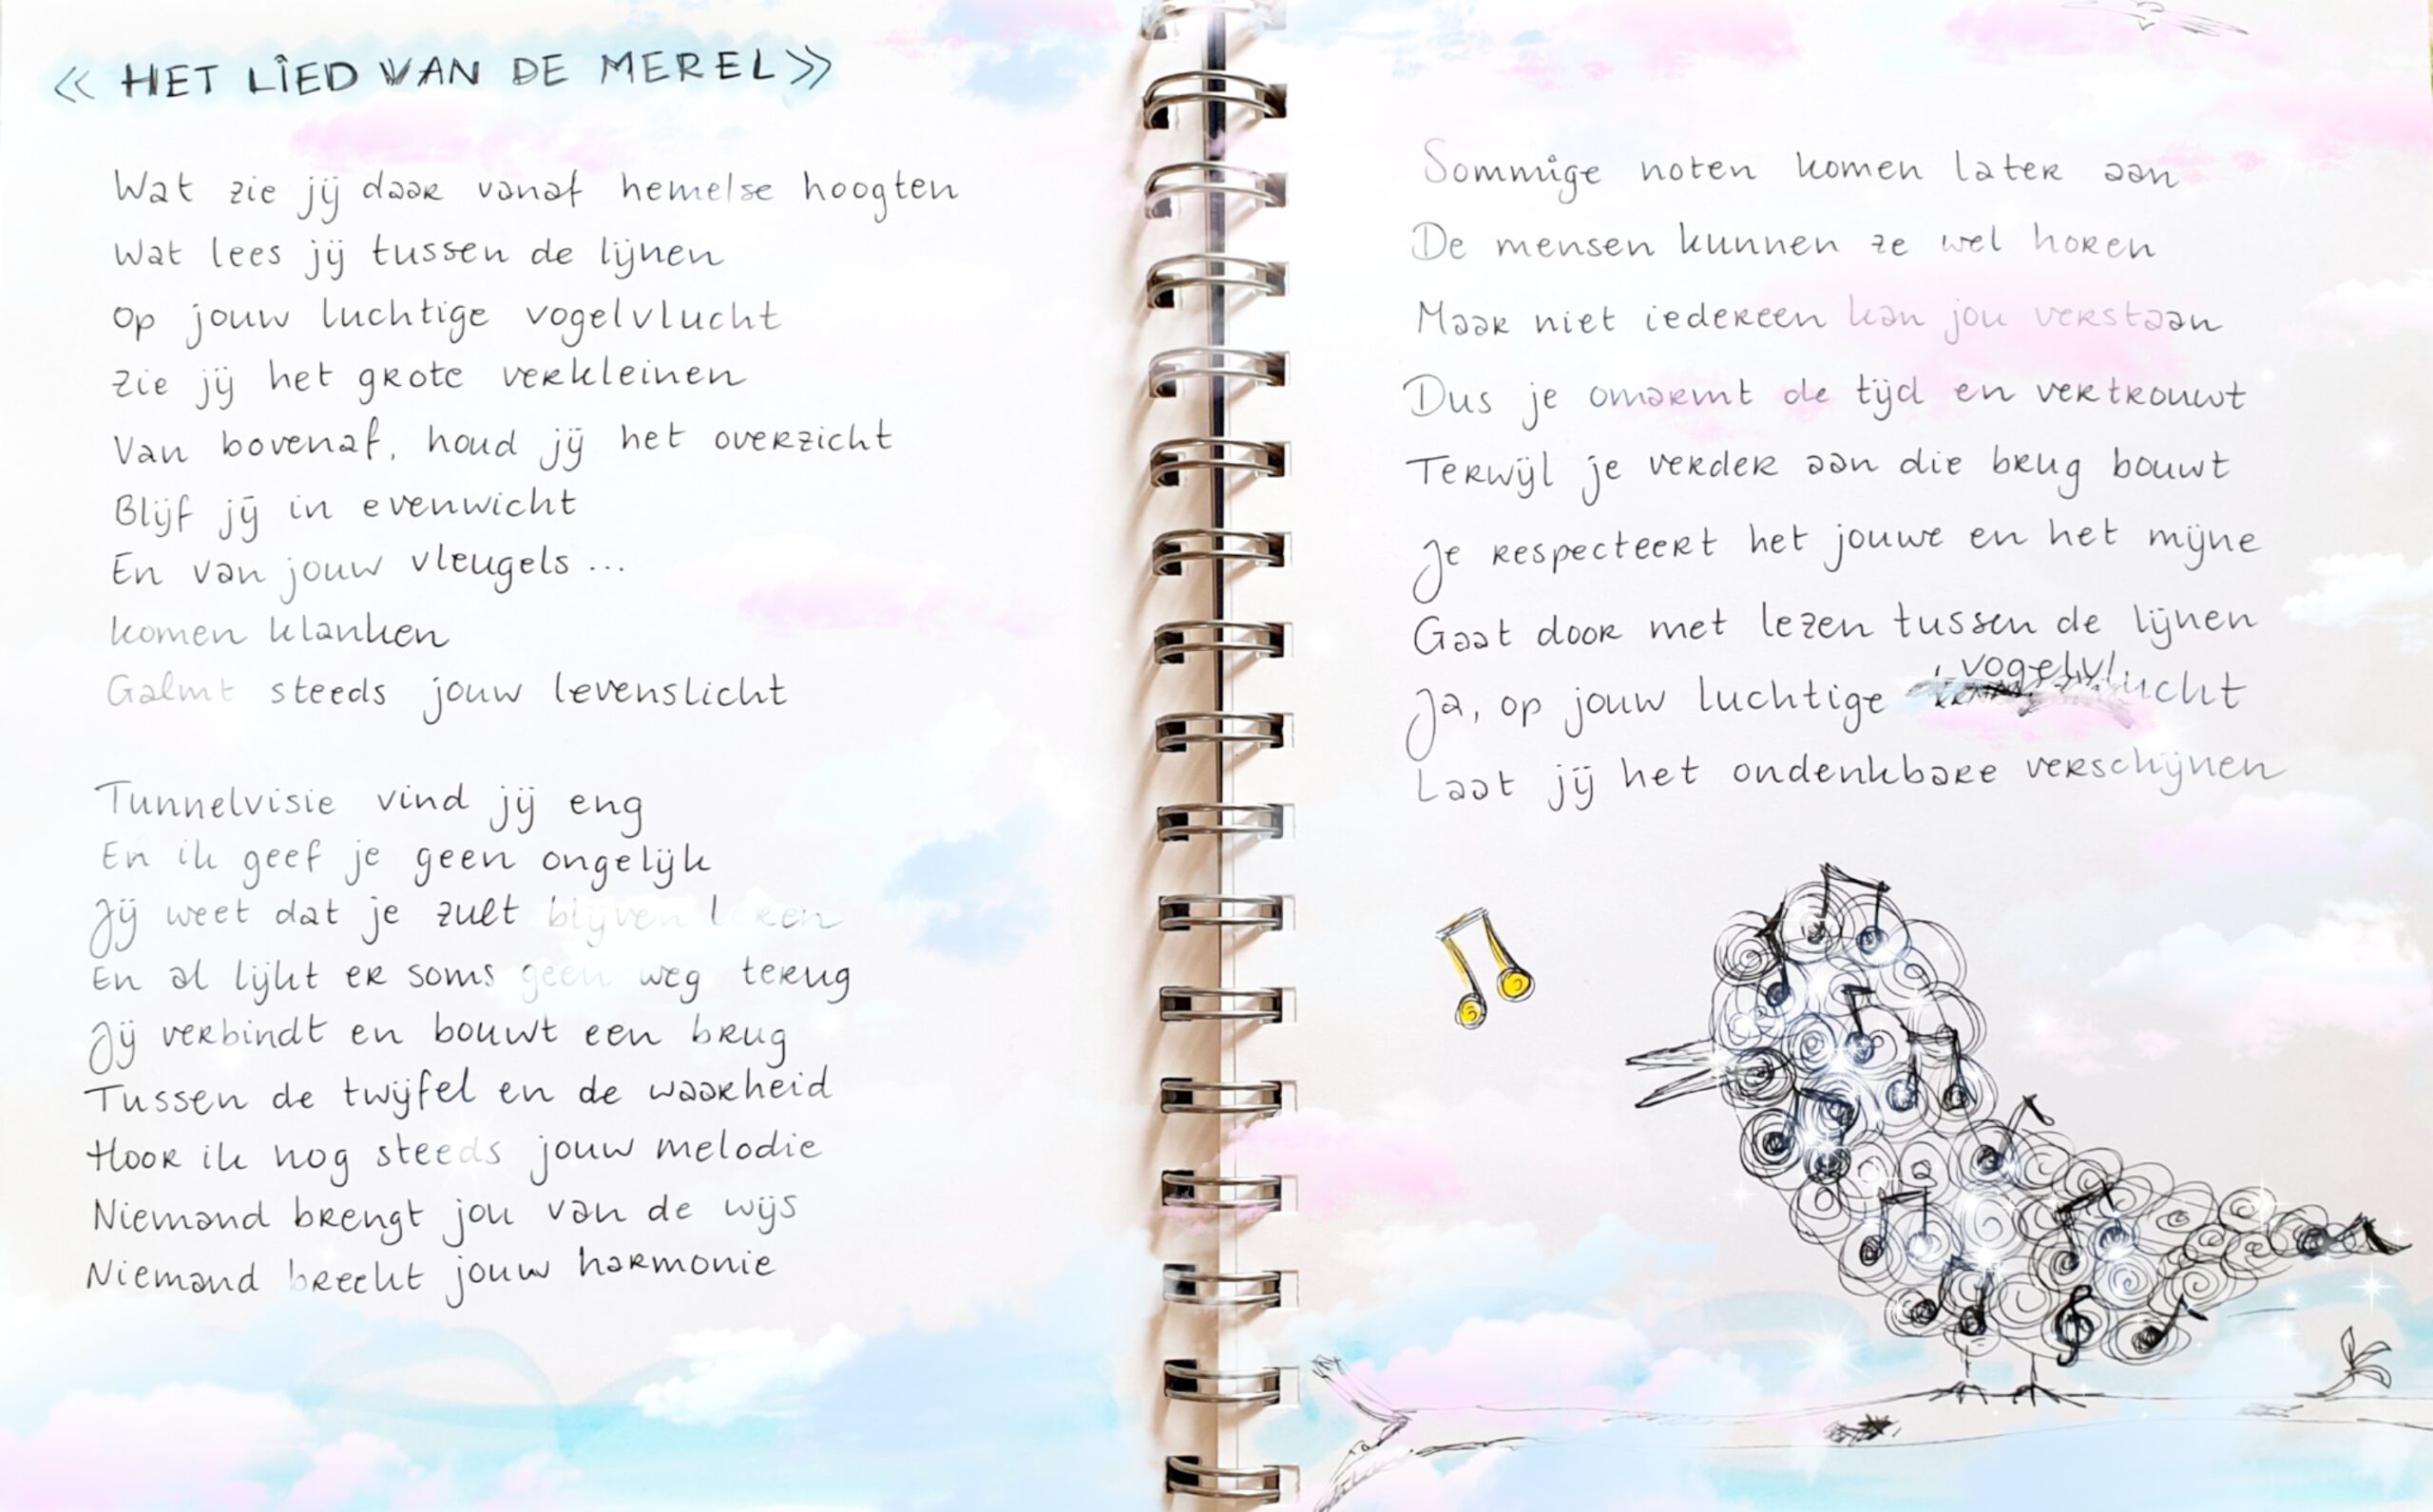 << HET LIED VAN DE MEREL >>
Wat zie jij daar vanaf hemelse hoogten
Wat lees jij tussen de lijnen
Op jouw luchtige vogelvlucht
Zie jij het grote verkleinen
Van bovenaf, houd jij het overzicht
Blijf jij in evenwicht
En van jouw vleugels ...
komen klanken
Galmt steeds jouw levenslicht
Tunnelvisie vind jij eng
En ik geef je geen ongelijk
Jij weet dat je zult blijven leren
En al lijkt er soms geen weg terug
Jij verbindt en bouwt een brug
Tussen de twijfel en de waarheid
Hoor ik nog steeds jouw melodie
Niemand brengt jou van de wijs
Niemand breekt jouw harmonie
Sommige noten komen later aan
De mensen kunnen ze wel horen
Maar niet iedereen kan jou verstaan
Dus je omarmt de tijd en vertrouwt
Terwijl je verder aan die brug bouwt
Je respecteert het jouwe en het mijne
Gaat door met lezen tussen de lijnen
Ja, op jouw luchtige vogelvlucht
Laat jij het ondenkbare verschijnen